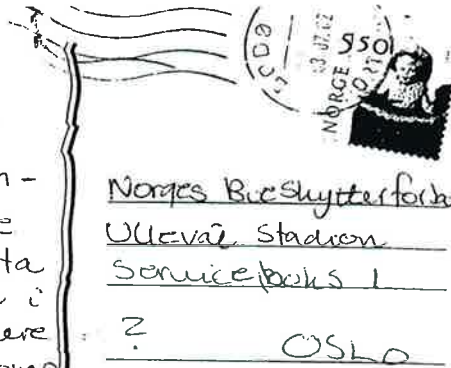 550
NORGE
n-
e
ta
i
ere
Norges BueSkytterforb
Ullevål Stadion
Serviceboks 1
? OSLO